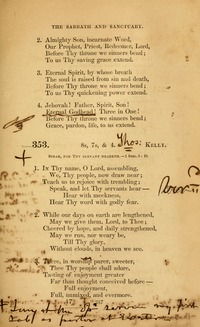 THE SABBATH AND SANCTUARY.
2. Almighty Son, incarnate Word,
Our Prophet, Priest, Redeemer, Lord,
Before Thy throne we sinners bend;
To us Thy saving grace extend.
3. Eternal Spirit, by whose breath
The soul is raised from sin and death,
Before Thy throne we sinners bend;
To us Thy quickening power extend.
4. Jehovah! Father, Spirit, Son!
Eternal Godhead! Three in One!
Before Thy throne we sinners bend;
Grace, pardon, life, to us extend.
353. 8s, 7s, & 4. Thos. KELLY.
SPEAK, FOR THY SERVANT HEARETH.—1 Sam. 3: 10.
1. In Thy name, O Lord, assembling,
We, Thy people, now draw near;
Teach us to rejoice with trembling;
Speak, and let Thy servants hear—
Hear with meekness,
Hear Thy word with godly fear.
2. While our days on earth are lengthened,
May we give them, Lord, to Thee;
Cheered by hope, and daily strengthened,
May we run, nor weary be,
Till Thy glory,
Without clouds, in heaven we see.
3. There, in worship purer, sweeter,
Thee Thy people shall adore,
Tasting of enjoyment greater
Far than thought conceived before—
Full enjoyment,
Full, unmixed, and evermore.